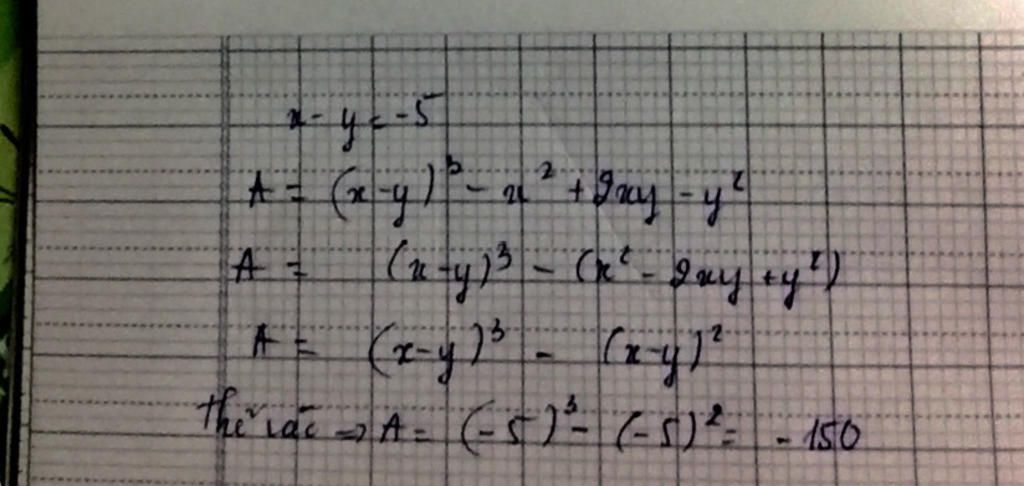 x - y = -5
A = (x-y)³ - x² + 2xy - y²
A = (x-y)³ - (x² - 2xy + y²)
A = (x-y)³ - (x-y)²
Thế vào => A = (-5)³ - (-5)² = -150